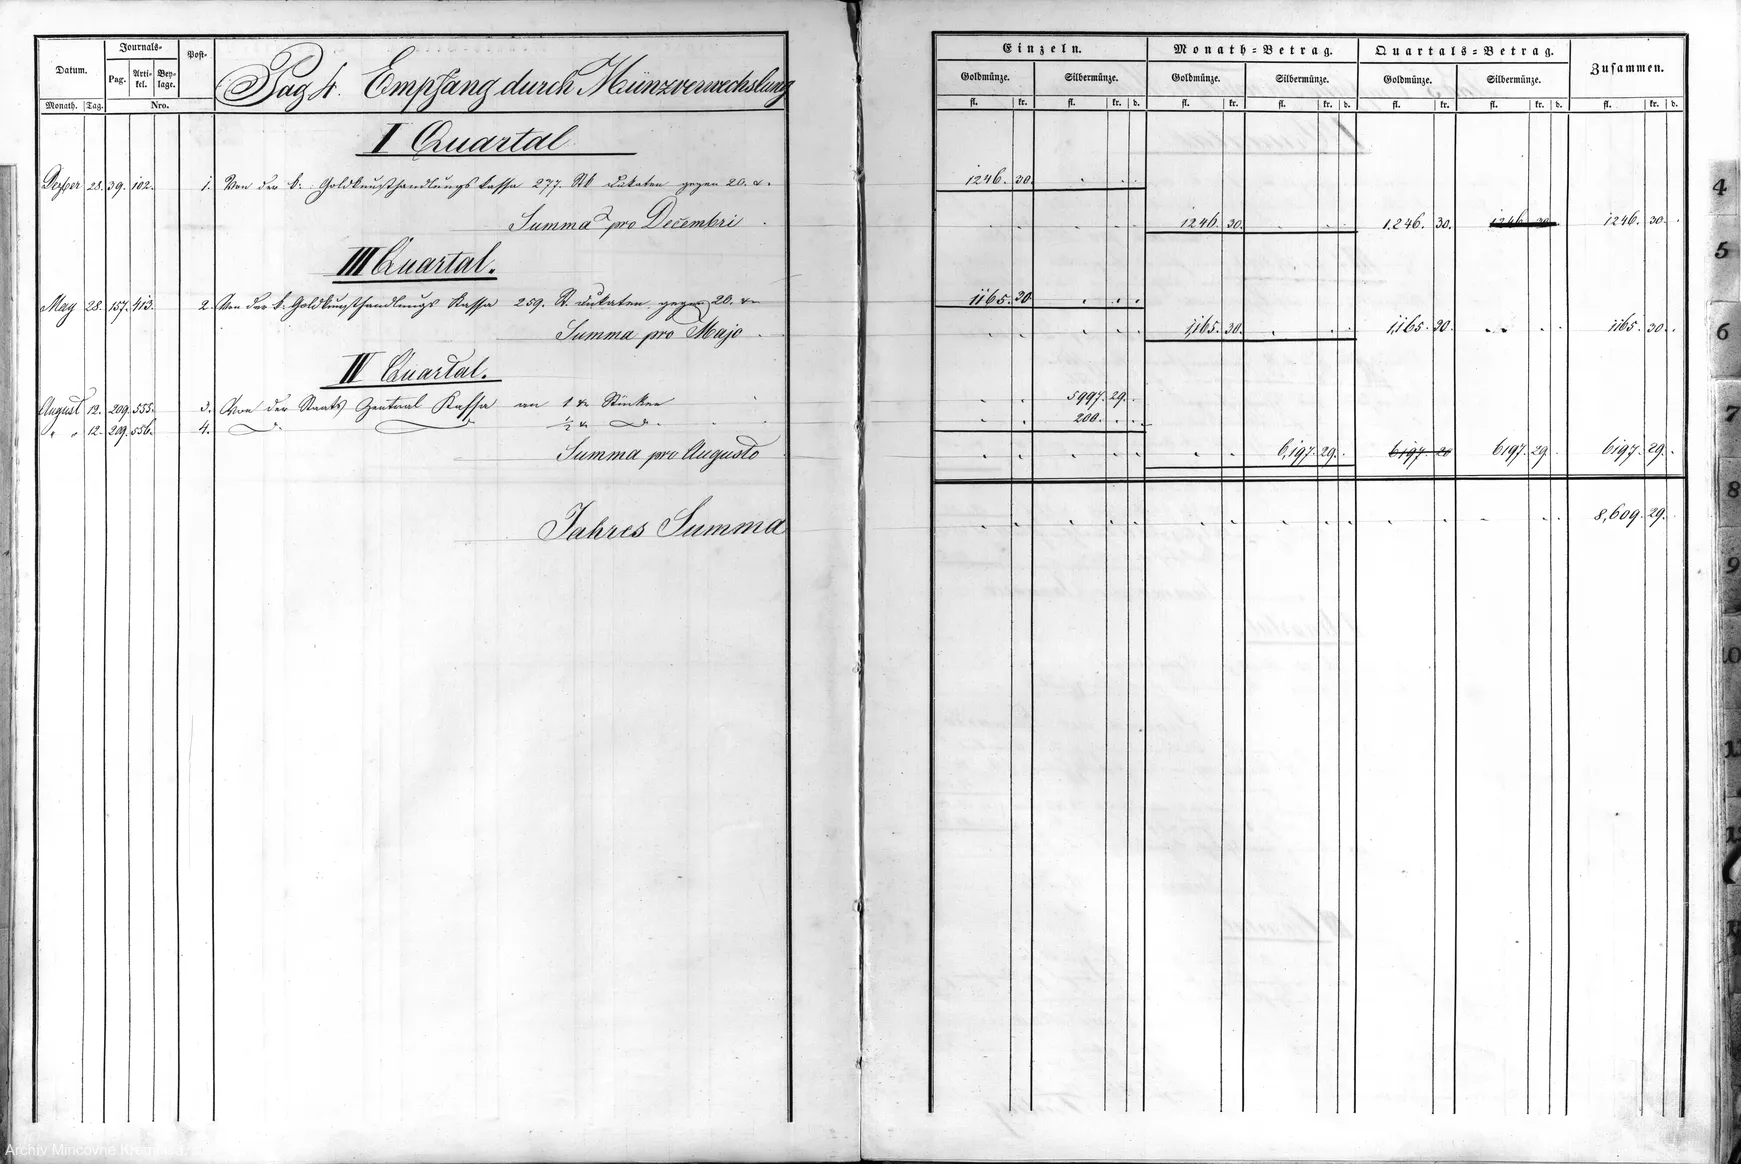 Datum. Journals- Post- Pag 4. Empfang durch Münzverwechslung
Pag. Arti- kel. Bey- lage.
Monath. Tag. Nro.
Einzeln. Monath=Betrag. Quartals=Betrag. Zusammen.
Goldmünze. Silbermünze. Goldmünze. Silbermünze. Goldmünze. Silbermünze.
fl. kr. fl. kr. d. fl. kr. fl. kr. d. fl. kr. fl. kr. d. fl. kr. d.
I Quartal
Dezber 28. 39. 102. 1. Von der k. Goldkunsthandlungs Cassa 277 Stk Dukaten gegen 20. 1246. 30.
Summa pro Decembri 1246. 30. 1.246. 30. 1246. 30. 1246. 30.
III Quartal.
May 28. 157. 413. 2. Von der k. Goldkunsthandlungs Kassa 259. St. Dukaten gegen 20. 1165. 30.
Summa pro Majo 1,165. 30. 1,165. 30. 1165. 30.
IV Quartal.
August 12. 209. 555. 3. Von der Staats Zentral Kassa an 1 Stücken 5997. 29.
" " 12. 209. 556. 4. 1/2 200.
Summa pro Augusto 6,197. 29. 6197 29 6197. 29. 6197. 29.
Jahres Summa 8,609. 29.
4
5
6
7
8
9
10
Archiv Mincovne Kremnica